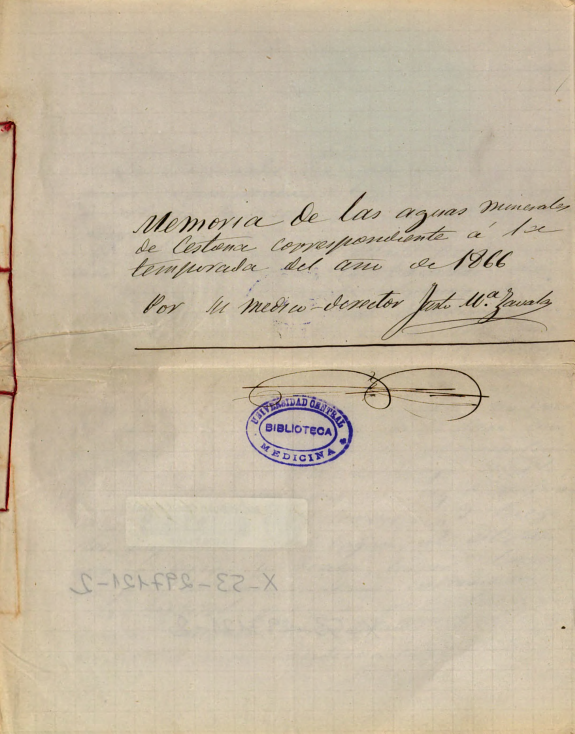 Memoria de las aguas minerales
de Cestona correspondiente á la
temporada del año de 1866
Por su medico-director Justo Mª. Zavala
UNIVERSIDAD CENTRAL
BIBLIOTECA
MEDICINA
X-53-297121-2